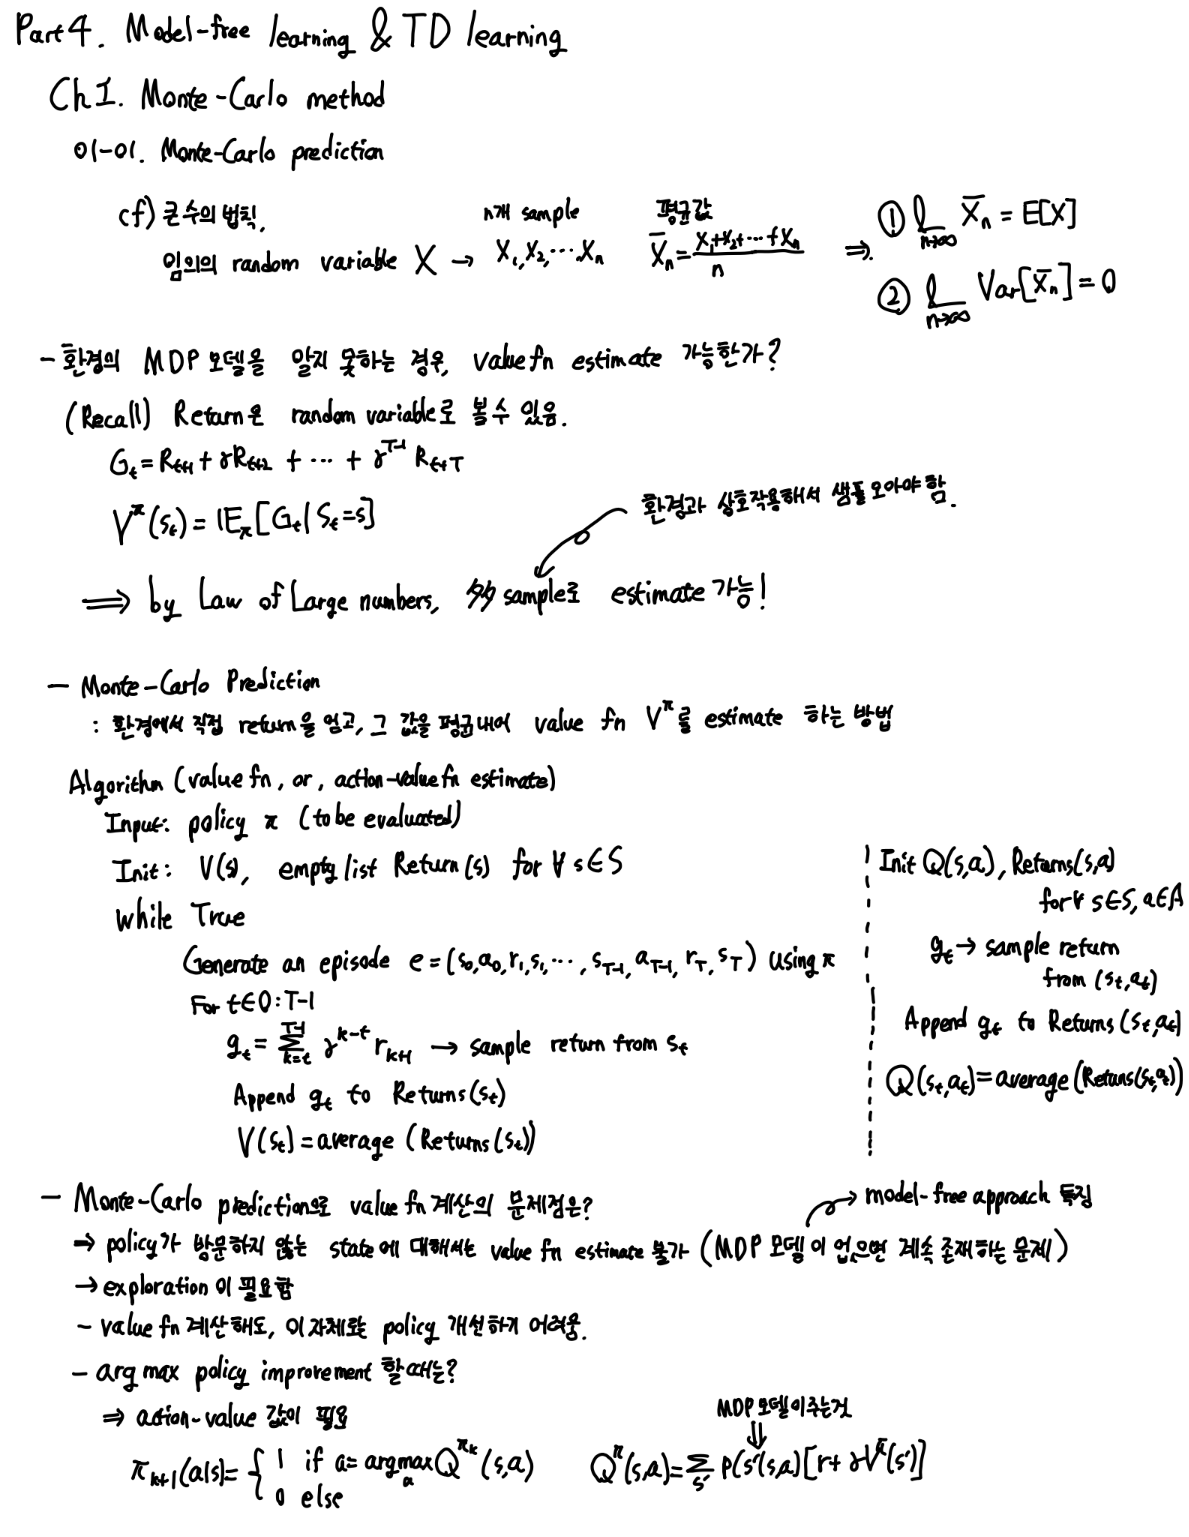 Part 4. Model-free learning & TD learning
Ch 1. Monte-Carlo method
01-01. Monte-Carlo prediction
cf) 큰 수의 법칙,
임의의 random variable X → n개 sample X₁, X₂, ..., Xₙ 평균값 X̄ₙ = (X₁+X₂+...+Xₙ)/n ⇒
① lim_{n→∞} X̄ₙ = E[X]
② lim_{n→∞} Var[X̄ₙ] = 0
- 환경의 MDP 모델을 알지 못하는 경우, value fn estimate 가능한가?
(Recall) Return은 random variable로 볼 수 있음.
G_t = R_{t+1} + γR_{t+2} + ... + γ^{T-1} R_{t+T}
V^π(s_t) = E_π[G_t | S_t = s]
환경과 상호작용해서 샘플 모아야 함.
⟹ by Law of Large numbers, 多 sample로 estimate 가능!
- Monte-Carlo Prediction
: 환경에서 직접 return을 얻고, 그 값을 평균내어 value fn V^π를 estimate 하는 방법
Algorithm (value fn, or, action-value fn estimate)
Input: policy π (to be evaluated)
Init: V(s), empty list Return(s) for ∀ s∈S
while True
Generate an episode e = (s₀, a₀, r₁, s₁, ..., s_{T-1}, a_{T-1}, r_T, s_T) using π
For t∈0:T-1
g_t = Σ_{k=t}^{T-1} γ^{k-t} r_{k+1} → sample return from s_t
Append g_t to Returns(s_t)
V(s_t) = average (Returns(s_t))
Init Q(s,a), Returns(s,a)
for ∀ s∈S, a∈A
g_t → sample return
from (s_t, a_t)
Append g_t to Returns(s_t, a_t)
Q(s_t, a_t) = average (Returns(s_t, a_t))
- Monte-Carlo prediction으로 value fn 계산의 문제점은?
model-free approach 특징
⇒ policy가 방문하지 않는 state에 대해서는 value fn estimate 불가 (MDP 모델이 없으면 계속 존재하는 문제)
→ exploration이 필요함
- value fn 계산해도, 이 자체로는 policy 개선하기 어려움.
- arg max policy improvement 할 때는?
⇒ action-value 값이 필요
MDP 모델이 주는 것
π_{k+1}(a|s) = { 1 if a = argmax_a Q^{π_k}(s,a)
0 else
Q^π(s,a) = Σ_{s'} P(s'|s,a)[r + γV^π(s')]